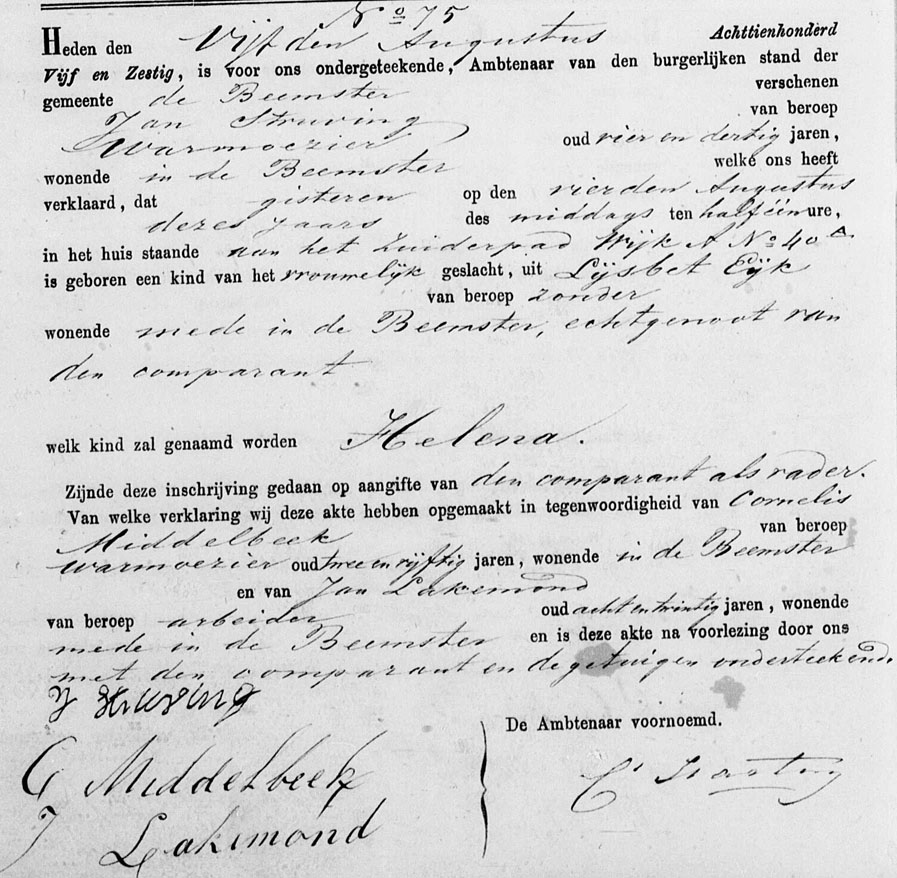 No 75
Heden den Vijfden Augustus Achttienhonderd
Vijf en Zestig, is voor ons ondergeteekende, Ambtenaar van den burgerlijken stand der
gemeente de Beemster verschenen
Jan Struving van beroep
Warmoezier oud vier en dertig jaren,
wonende in de Beemster welke ons heeft
verklaard, dat gisteren op den vierden Augustus
dezes jaars des middags ten half één ure,
in het huis staande aan het Zuiderpad Wijk A No 40a
is geboren een kind van het vrouwelijk geslacht, uit Lijsbet Eijk
van beroep zonder
wonende mede in de Beemster, echtgenoot van
den comparant
welk kind zal genaamd worden Helena.
Zijnde deze inschrijving gedaan op aangifte van den comparant als vader.
Van welke verklaring wij deze akte hebben opgemaakt in tegenwoordigheid van Cornelis
Middelbeek van beroep
warmoezier oud twee en vijftig jaren, wonende in de Beemster
en van Jan Lakemond
van beroep arbeider oud acht en twintig jaren, wonende
mede in de Beemster en is deze akte na voorlezing door ons
met den comparant en de getuigen onderteekend.
J Struving
De Ambtenaar voornoemd.
C Middelbeek
J Lakemond